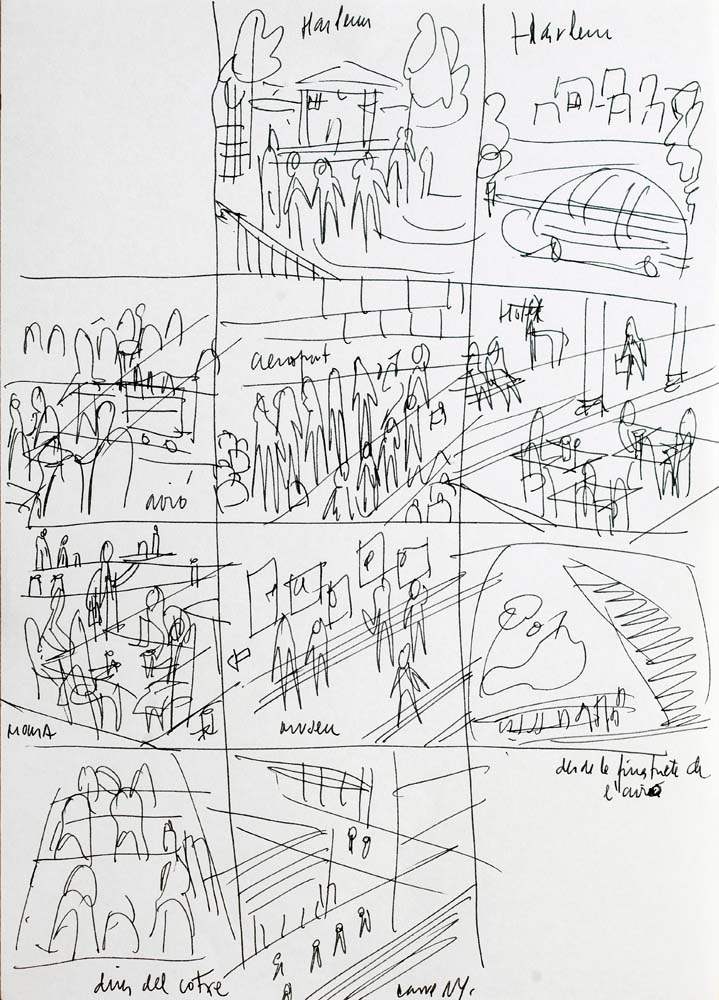 Harlem
Harlem
aeroport
Hotel
avió
MOMA
museu
des de la finestreta de
l'avió
dins del cotxe
carrer NY.